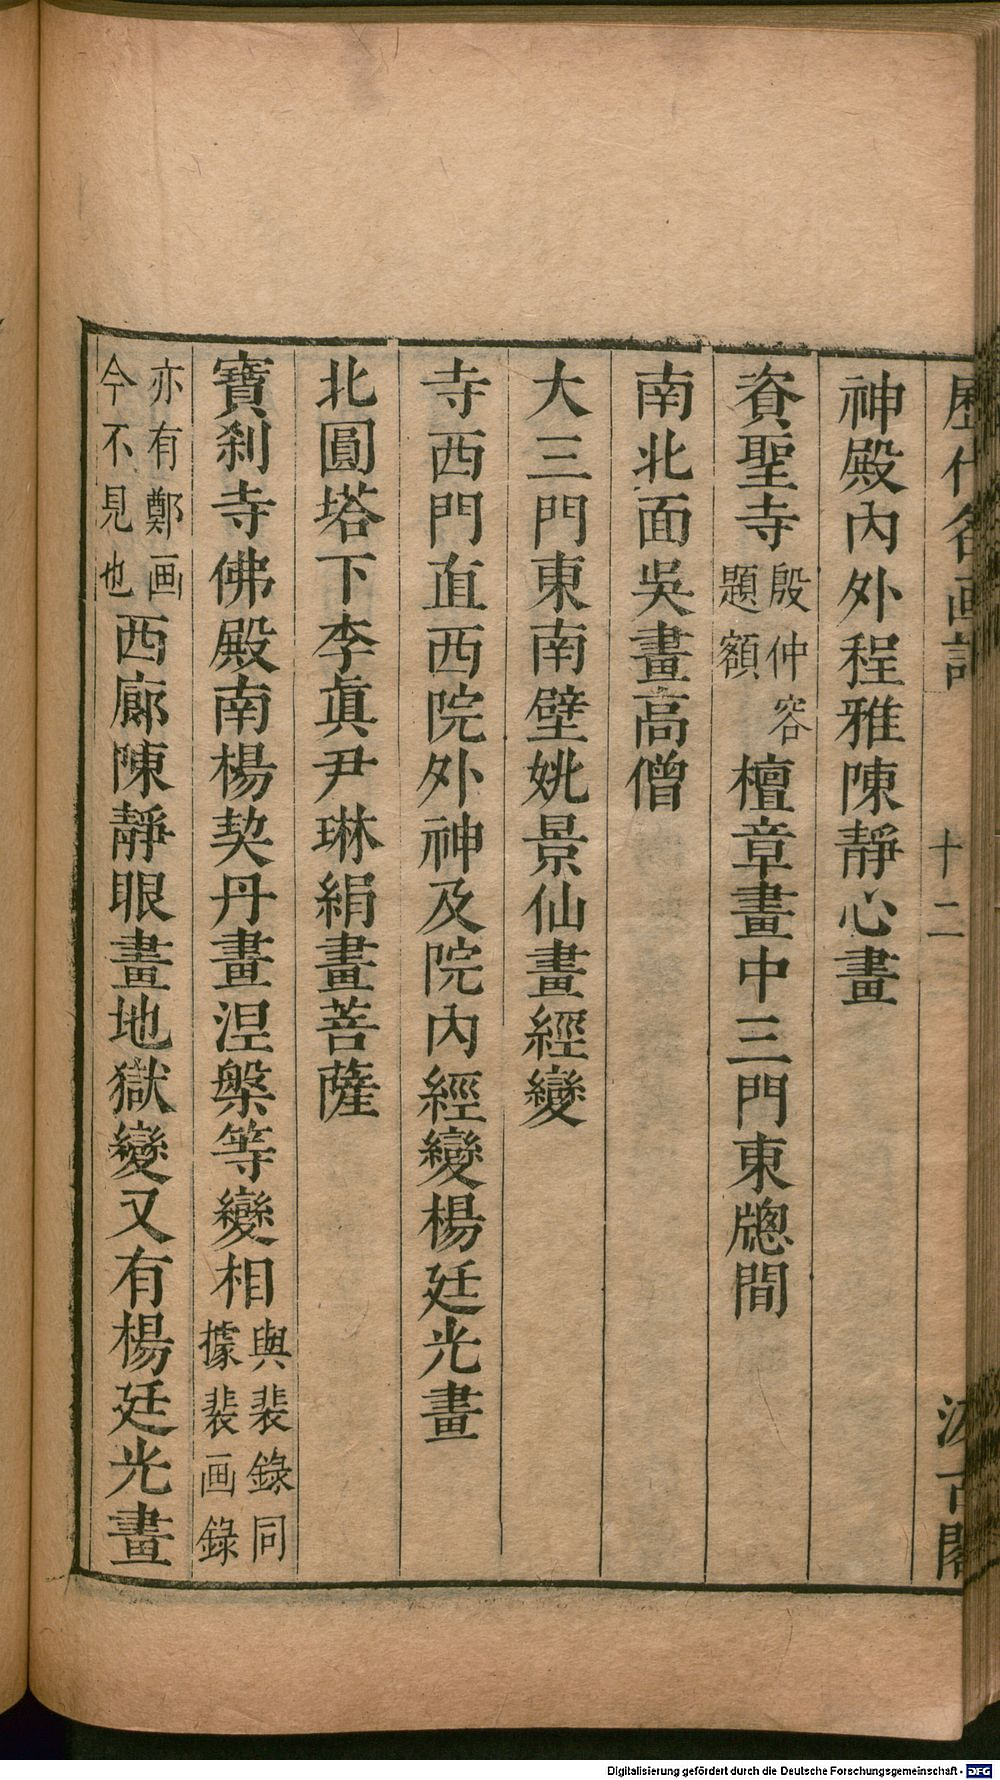 歷代名画記
十二
汲古閣
神殿內外程雅陳靜心畫
資聖寺殷仲容題額檀章畫中三門東牎間
南北面吳畫高僧
大三門東南壁姚景仙畫經變
寺西門直西院外神及院內經變楊廷光畫
北圓塔下李眞尹琳絹畫菩薩
寶刹寺佛殿南楊契丹畫涅槃等變相與裴錄同據裴画錄
亦有鄭画今不見也西廊陳靜眼畫地獄變又有楊廷光畫
Digitalisierung gefördert durch die Deutsche Forschungsgemeinschaft - DFG